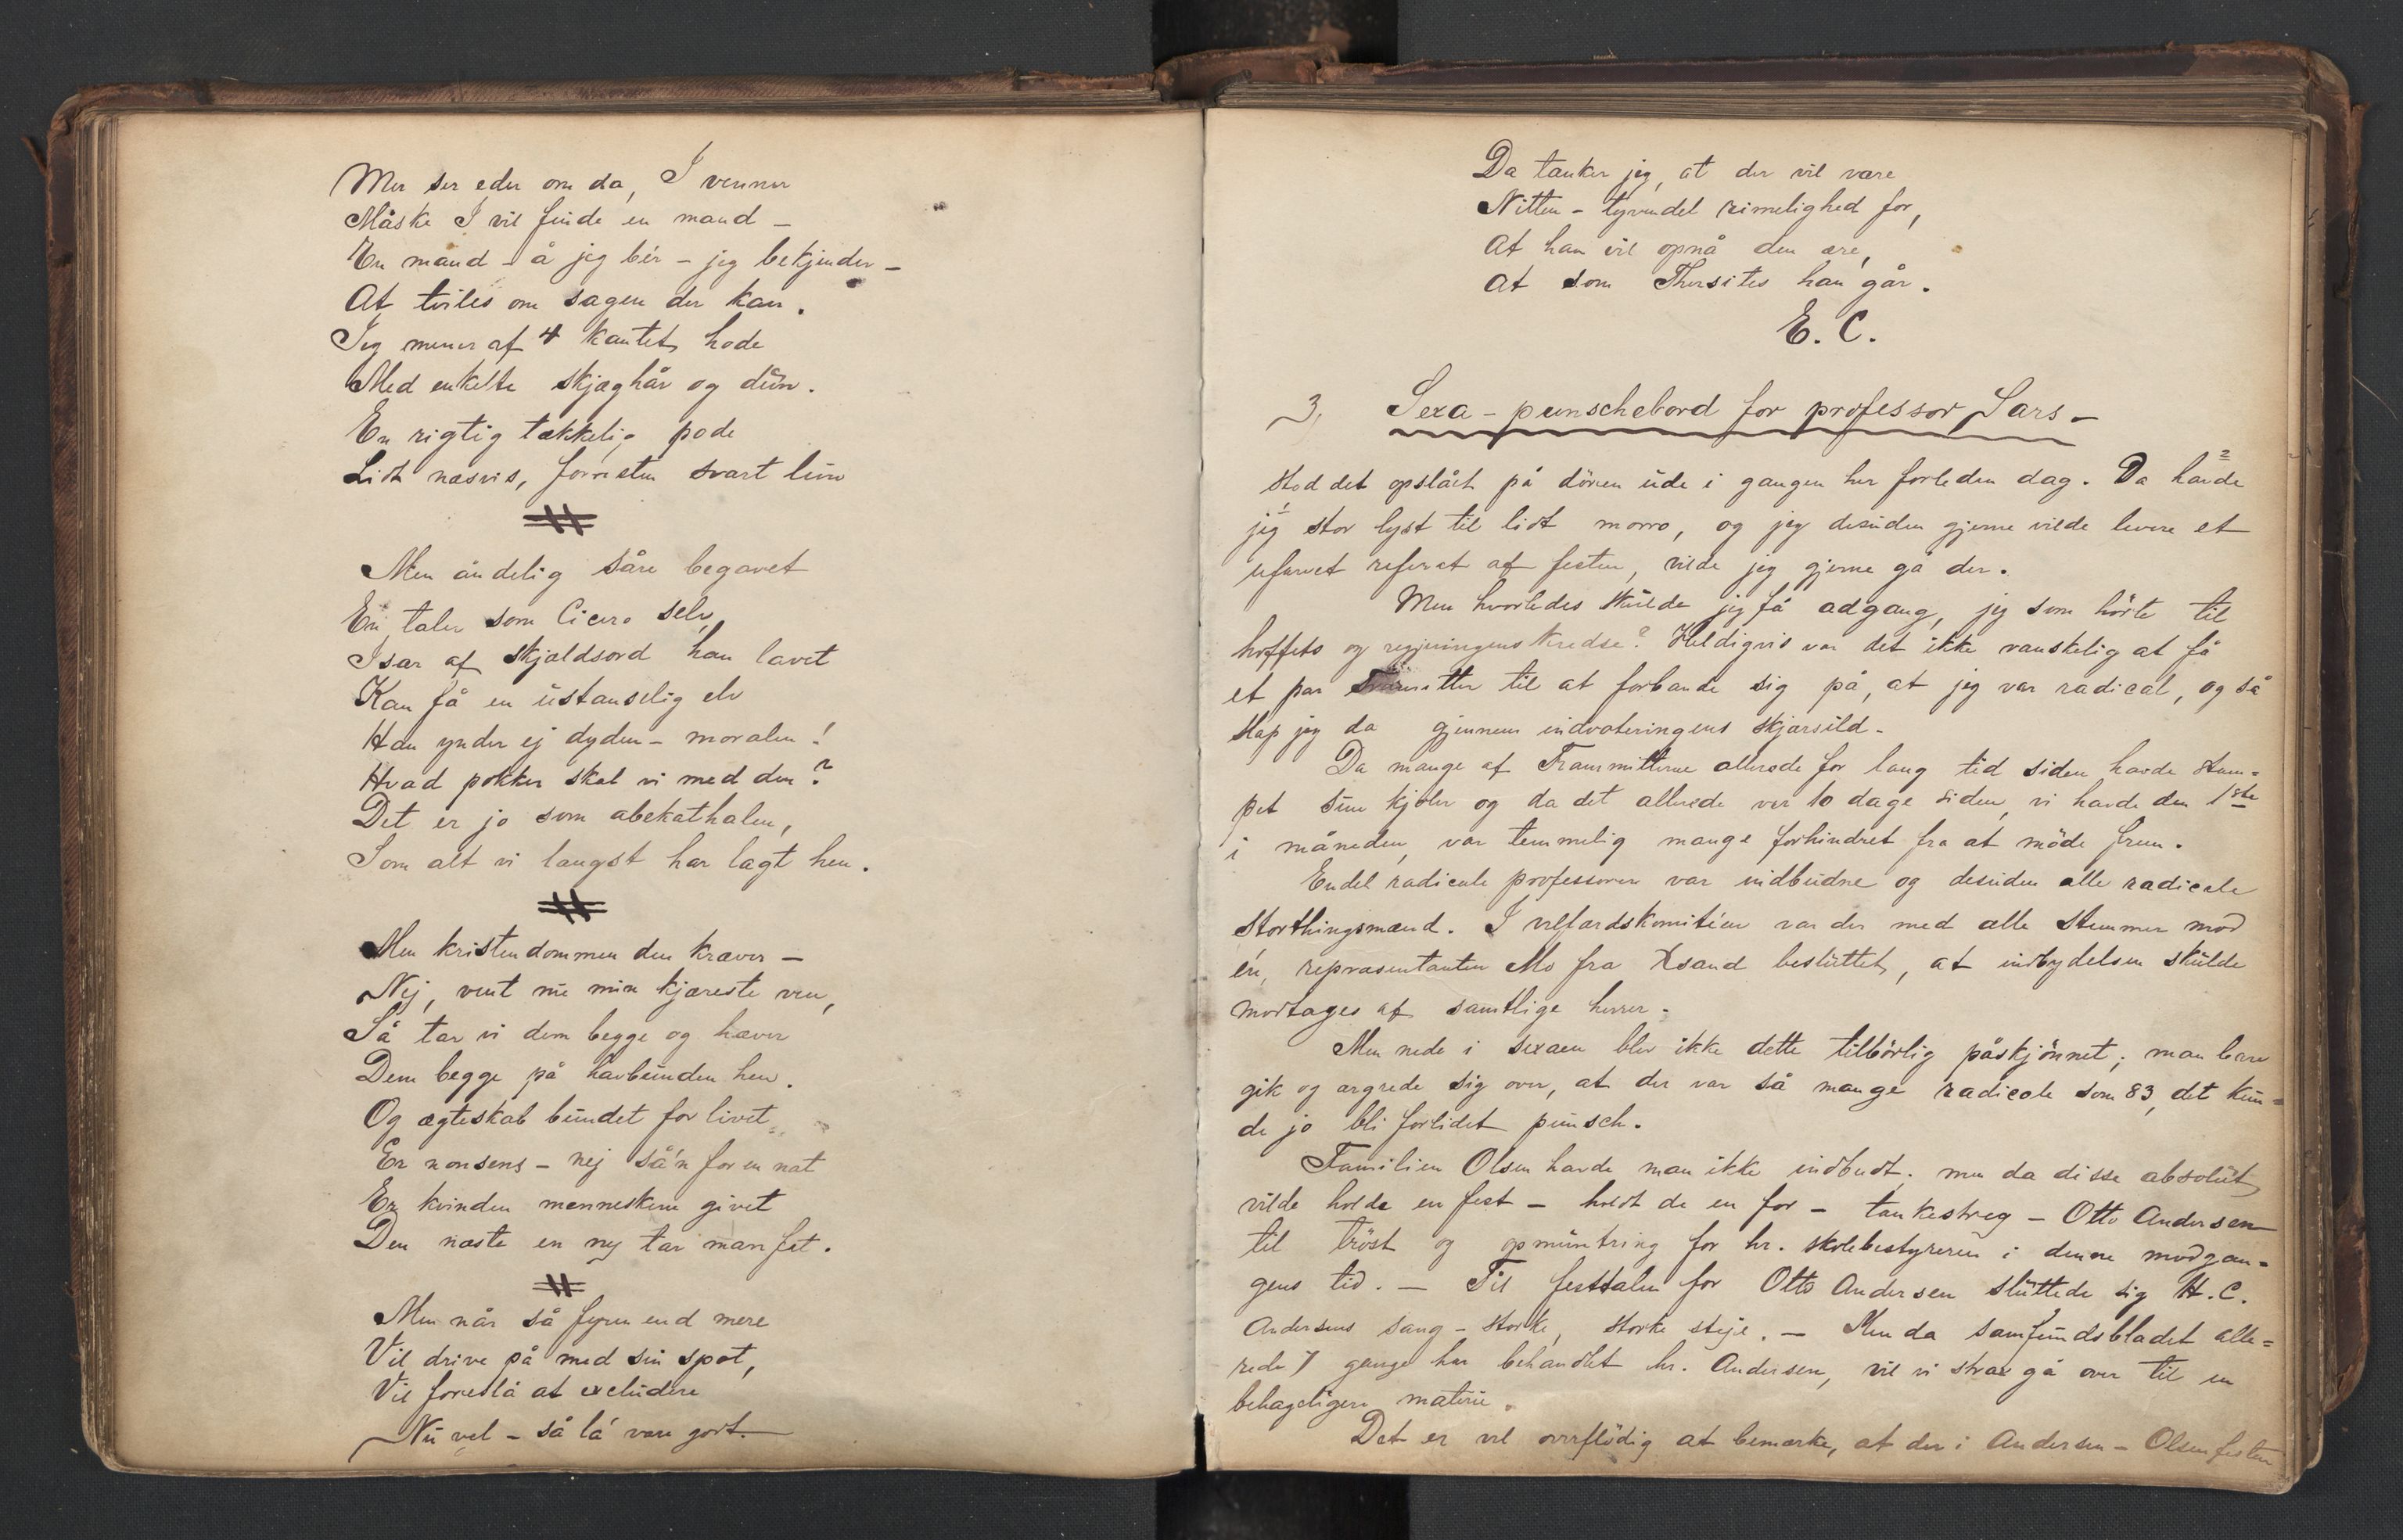 Men ser eder om da, I venner
Måske I vil finde en mand –
En mand – å jeg bér – jeg bekjender –
At tviles om sagen der kan.
Jeg mener af 4 kantet hode
Med enkelte skjæghår og dun.
En rigtig tækkelig pode
Lidt næsvis, forresten svært lun
Men åndelig såre begavet
En taler som Cicero selv,
Især af skjældsord han lavet
Kan få en ustanselig elv
Han ynder ej dyden – moralen!
Hvad pokker skal vi med den?
Det er jo som abekathalen,
Som alt vi længst har lagt hen.
Men kristendommen den kræver –
Nej, vent nu min kjæreste ven,
Så tar vi dem begge og hæver
Dem begge på havbunden hen.
Og ægteskab bundet for livet
Er nonsens – nej så'n for en nat
Er kvinden menneskene givet
Den næste en ny tar man fat.
Men når så fyren end mere
Vil drive på med sin spot,
Vil foreslå at excludere
Nu vel – så lá være godt.
Da tænker jeg, at der vil være
Nitten – tyvendel rimelighed for,
At han vil opnå den ære,
At som Thersites han går.
E. C.
3, Sexa – punschebord for professor Sars –
stod det opslået på dören ude i gangen her forleden dag. Da havde
jeg stor lyst til lidt morro, og jeg desuden gjerne vilde levere et
ufarvet referat af festen, vilde jeg gjerne gå der.
Men hvorledes skulde jeg få adgang, jeg som hörte til
hoffets og regjeringens kredse? Heldigvis var det ikke vanskelig at få
et par til at forbande sig på, at jeg var radical, og så
slap jeg da gjennem indvoteringens skjærsild.
Da mange af Franmitterne allerede for lang tid siden havde stam=
pet sine kjoler og da det allerede var 10 dage siden, vi havde den 1ste
i måneden, var temmelig mange forhindret fra at möde frem.
Endel radicale professorer var indbudne og desuden alle radicale
storthingsmænd. I velfærdskomitéen var der med alle stemmer mod
én, repræsentanten Mo fra Xsand besluttet, at indbydelsen skulde
modtages af samtlige herrer.
Men nede i sexaen blev ikke dette tilbörlig påskjönnet; man bare
gik og ærgrede sig over, at der var så mange radicale som 83, det kun=
de jo bli forlidet punsch.
Familien Olsen havde man ikke indbudt; men da disse absolut
vilde holde en fest – holdt de en for – tankestreg – Otto Andersen
til tröst og opmuntring for hr. skolebestyreren i denne modgan=
gens tid. – Til festtalen for Otto Andersen sluttede sig H. C.
Andersens sang – storke, storke steje. – Men da samfundsbladet alle=
rede 7 gange har behandlet hr. Andersen, vil vi strax gå over til en
behageligere materie.
Det er vel overflödig at bemærke, at der i Andersen – Olsenfesten